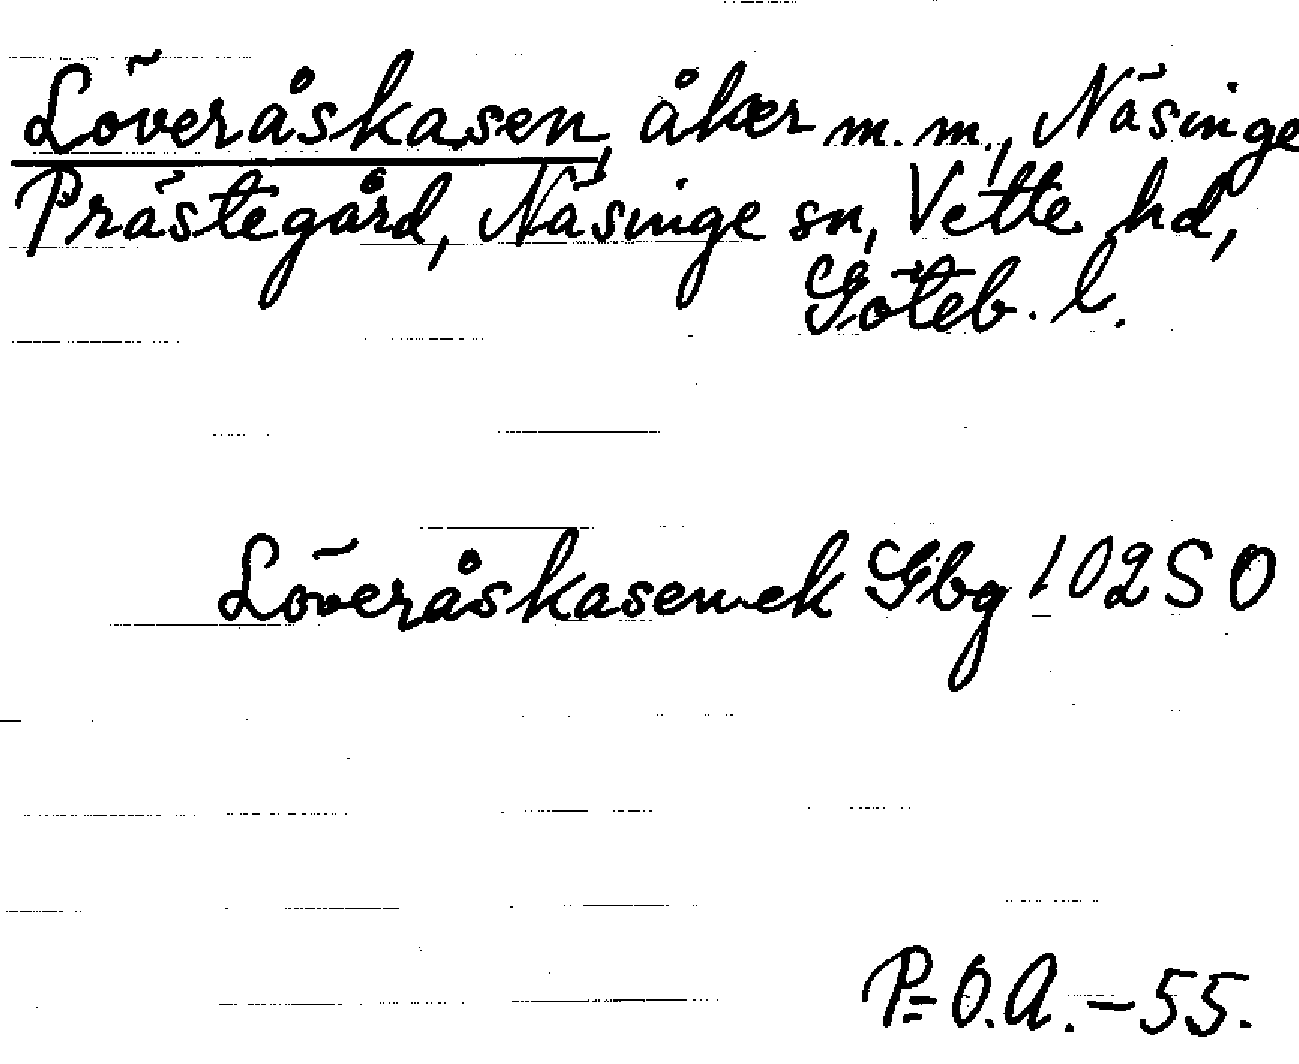 Löveråskasen, åker m.m., Näsinge
Prästegård, Näsinge sn, Vette hd,
Göteb. l.
Löveråskasen ek Gbg 10 2S O
P-O.A.-55.